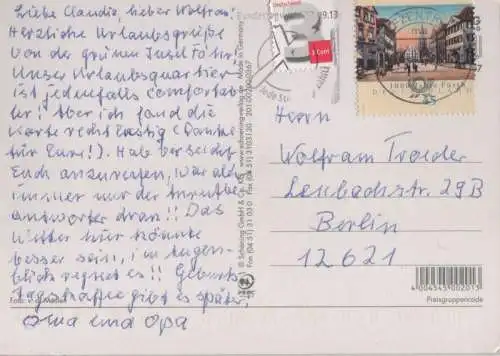 Liebe Claudia, lieber Wolfram!
Herzliche Urlaubsgrüße
von der grünen Insel Föhr!
Unser Urlaubsquartier
ist jedenfalls comfortab-
ler! Aber ich fand die
Karte recht lustig (Danke
für Eure!). Hab versucht
Euch anzurufen, war aber
immer nur der Anrufbe-
antworter dran!! Das
Wetter hier könnte
besser sein, im Augen-
blick regnet es!! Geburts-
tagskaffee gibt es später,
Oma und Opa
Herrn
Wolfram Troeder
Lenbachstr. 29B
Berlin
12621
Deutschland
3 Cent
1000 Jahre Fürth
09.13
© Schöning GmbH & Co. KG
www.schoening-verlag.de
Made in Germany
Foto:
4 004545 002015
Preisgruppencode